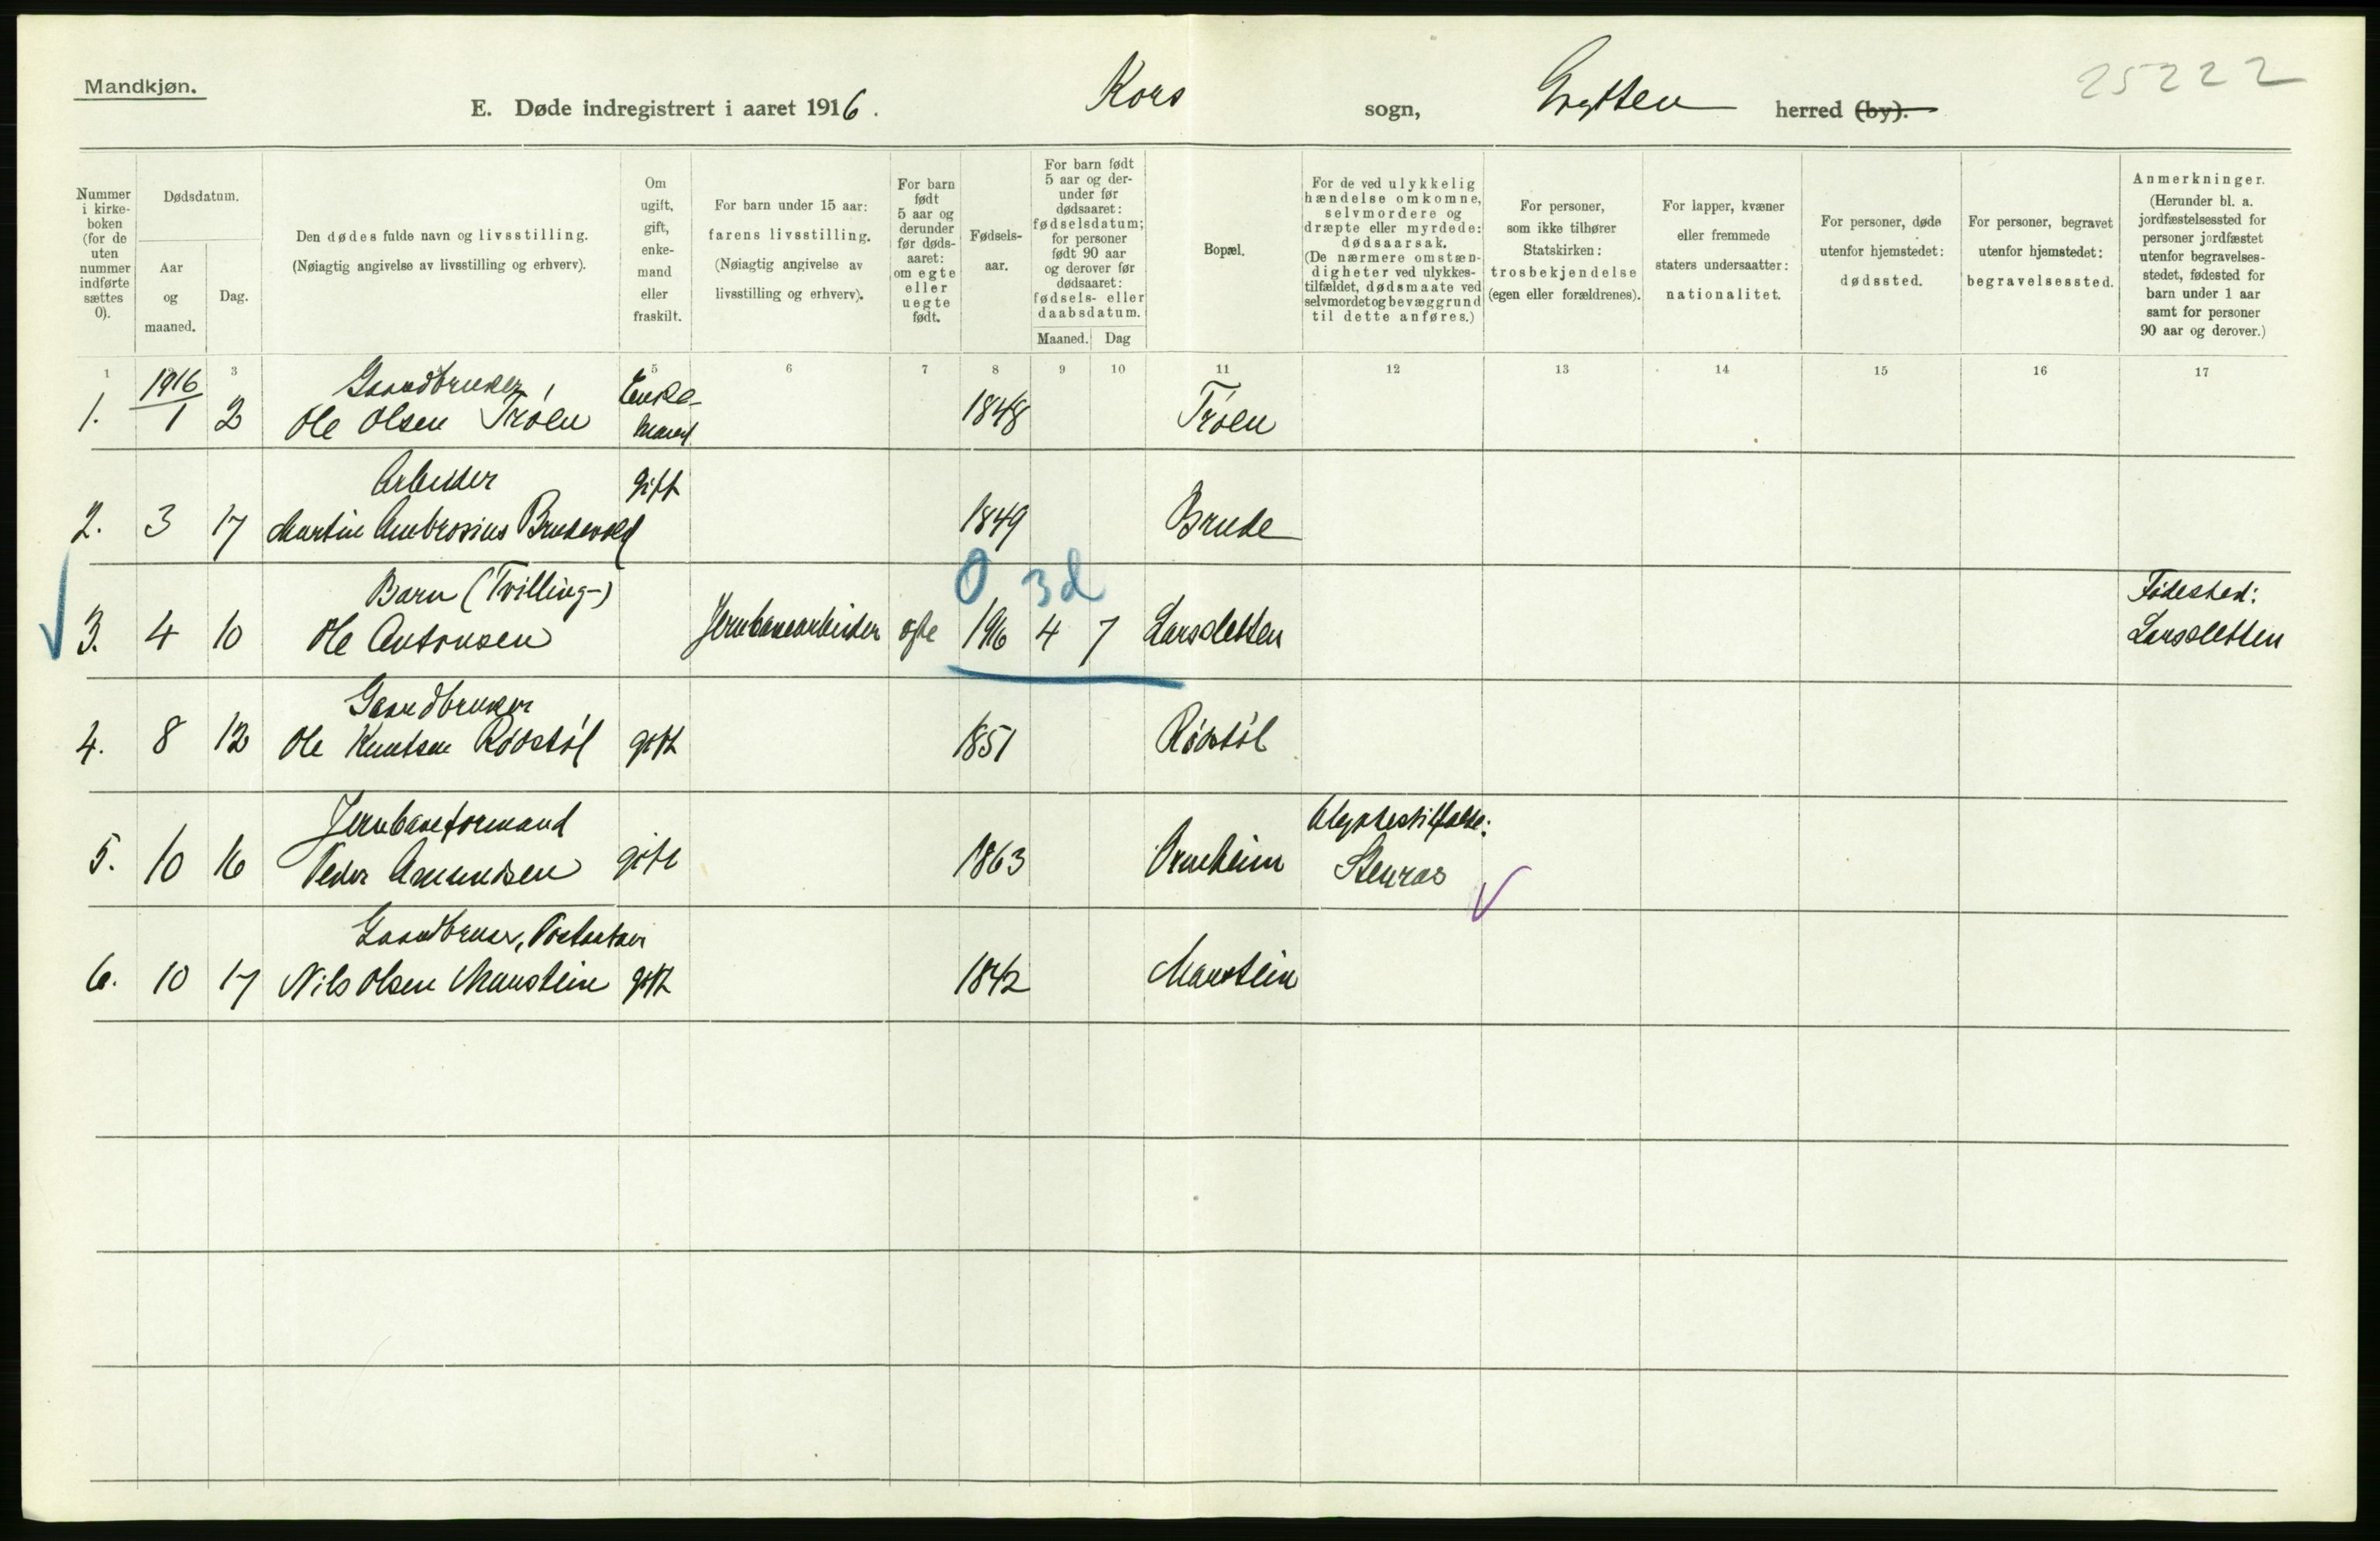 Mandkjøn.
25222
E. Døde indregistrert i aaret 1916. Kors sogn, Grytten herred (by).
Nummer i kirkeboken (for de uten nummer indførte sættes 0).
Dødsdatum.
Aar og maaned.
Dag.
Den dødes fulde navn og livsstilling.
(Nøiagtig angivelse av livsstilling og erhverv).
Om ugift, gift, enkemand eller fraskilt.
For barn under 15 aar: farens livsstilling.
(Nøiagtig angivelse av livsstilling og erhverv).
For barn født 5 aar og derunder før dødsaaret: om egte eller uegte født.
Fødselsaar.
For barn født 5 aar og derunder før dødsaaret: fødselsdatum; for personer født 90 aar og derover før dødsaaret: fødsels- eller daabsdatum.
Maaned. Dag
Bopæl.
For de ved ulykkelig hændelse omkomne, selvmordere og dræpte eller myrdede: dødsaarsak.
(De nærmere omstændigheter ved ulykkestilfældet, dødsmaate ved selvmordet og bevæggrund til dette anføres.)
For personer, som ikke tilhører Statskirken: trosbekjendelse (egen eller forældrenes).
For lapper, kvæner eller fremmede staters undersaatter: nationalitet.
For personer, døde utenfor hjemstedet: dødssted.
For personer, begravet utenfor hjemstedet: begravelsessted.
Anmerkninger.
(Herunder bl. a. jordfæstelsessted for personer jordfæstet utenfor begravelsesstedet, fødested for barn under 1 aar samt for personer 90 aar og derover.)
1 3 5 6 7 8 9 10 11 12 13 14 15 16 17
1916 Gaardbruker, Enke-
1. 1 2 Ole Olsen Trøen mand 1848 Trøen
Arbeider gift
2. 3 17 Martin Ambrosius Brudevold 1849 Brude
0 3d
Barn (Tvilling-) Fødested:
3. 4 10 Ole Antonsen Jernbanearbeider egte 1916 4 7 Larsletten Larsletten
Gaardbruker
4. 8 12 Ole Knutsen Rødstøl gift 1851 Rødstøl
Jernbaneformand Ulykkestilfælde:
5. 10 16 Peder Amundsen gift 1863 Ormheim Stenras
Gaardbruker,
6. 10 17 Nils Olsen Marstein gift 1842 Marstein